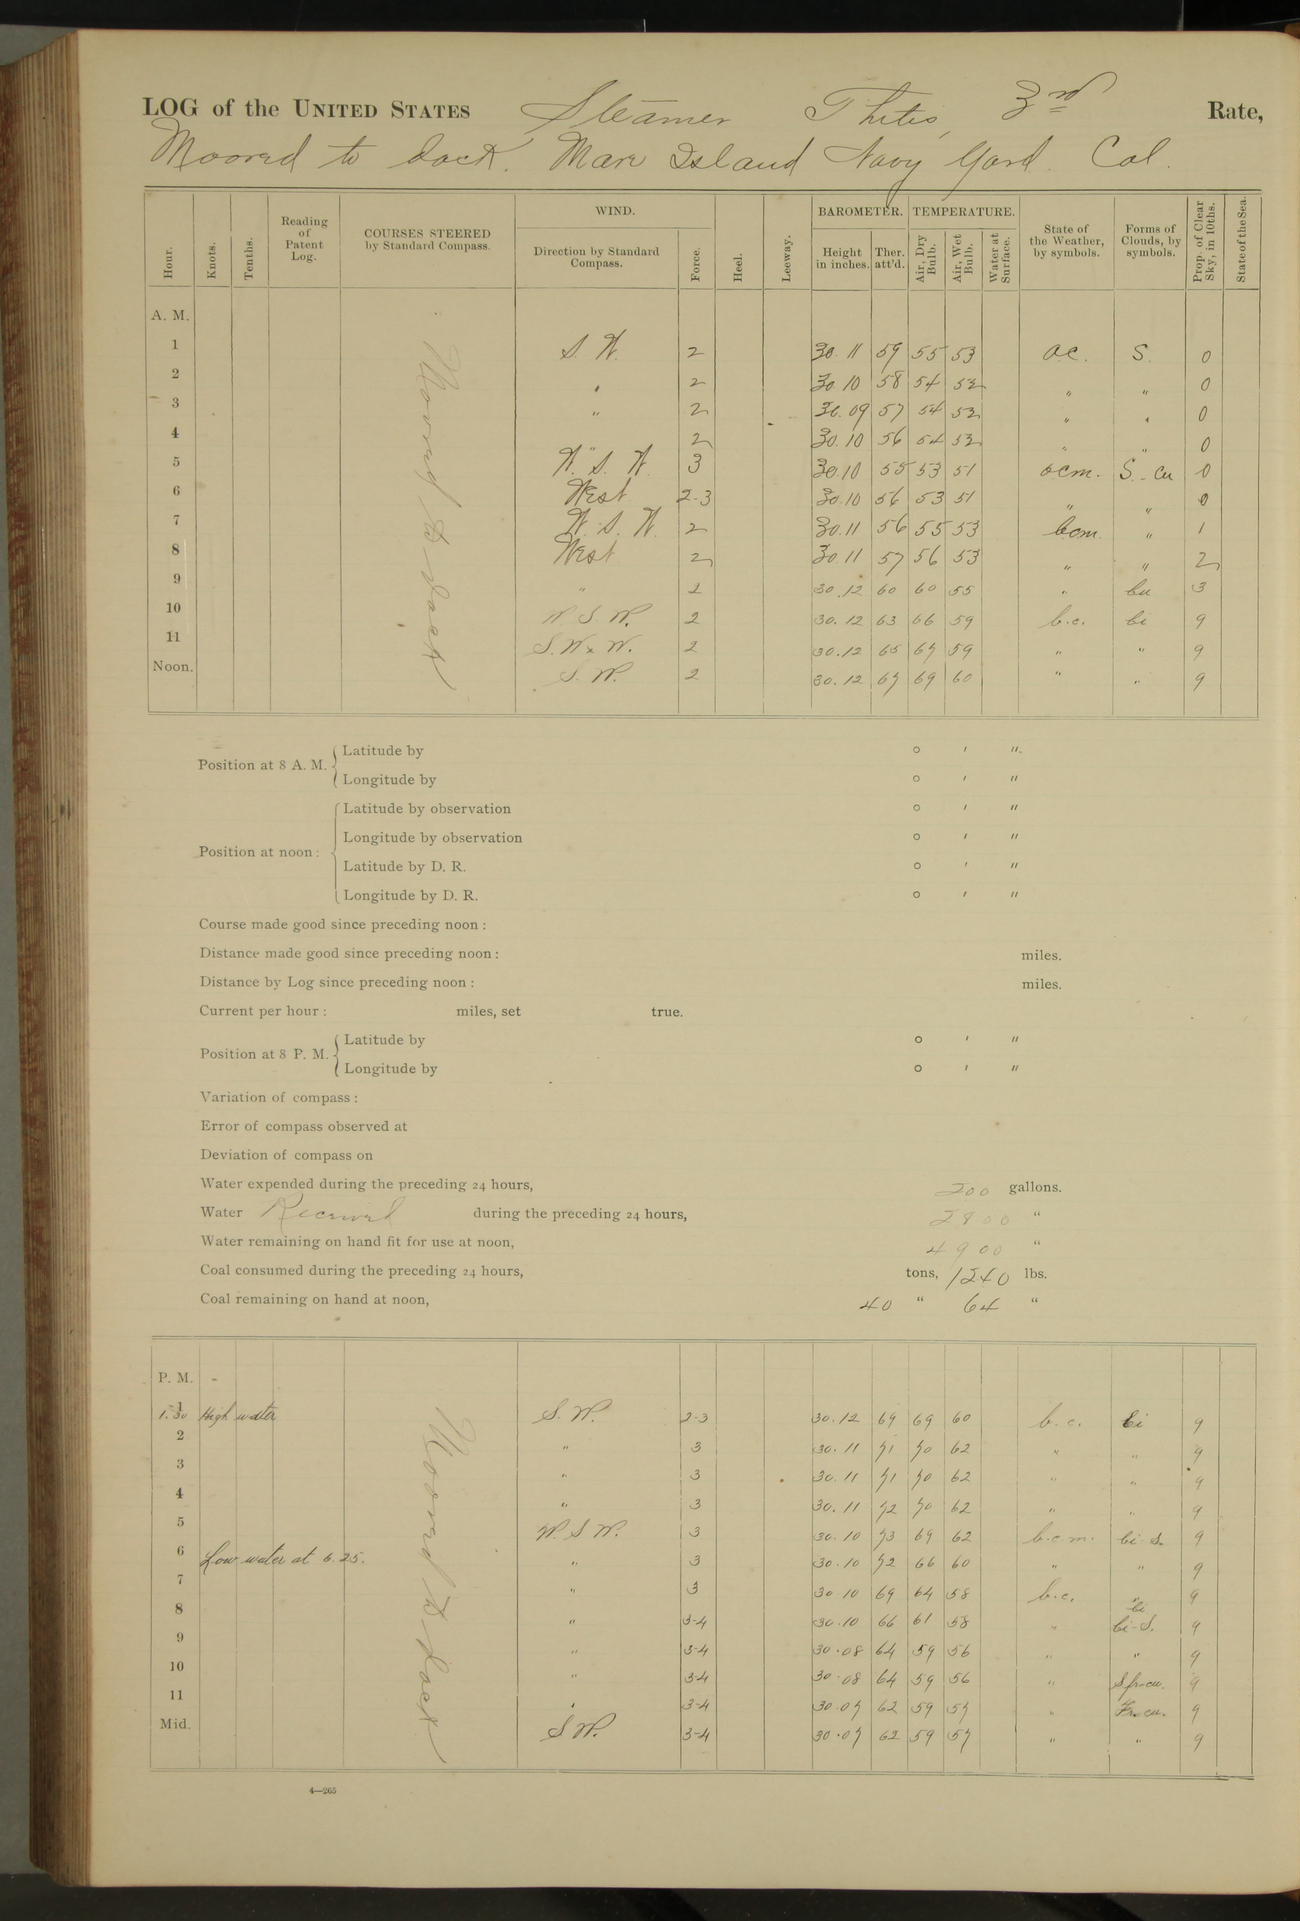 LOG of the UNITED STATES Steamer Thetis, 3rd Rate,
Moored to dock. Mare Island Navy Yard. Cal.
Hour. Knots. Tenths. Reading of Patent Log. COURSES STEERED by Standard Compass. WIND. Direction by Standard Compass. Force. Heel. Leeway. BAROMETER. Height in inches. Ther. att'd. TEMPERATURE. Air, Dry Bulb. Air, Wet Bulb. Water at Surface. State of the Weather, by symbols. Forms of Clouds, by symbols. Prop. of Clear Sky, in 10ths. State of the Sea.
A. M.
Moored to dock
1 S. W. 2 30.11 59 55 53 oc. S. 0
2 " 2 30.10 58 54 52 " " 0
3 " 2 30.09 57 54 52 " " 0
4 " 2 30.10 56 54 52 " " 0
5 W. S. W. 3 30.10 55 53 51 ocm. S.-cu 0
6 West 2-3 30.10 56 53 51 " " 0
7 W. S. W. 2 30.11 56 55 53 bcm. " 1
8 West 2 30.11 57 56 53 " " 2
9 " 2 30.12 60 60 55 " 3
10 W. S. W. 2 30.12 63 66 59 b.c. ci 9
11 S. W. x W. 2 30.12 65 67 59 " " 9
Noon. S. W. 2 30.12 67 69 60 " " 9
Position at 8 A. M. Latitude by ° ′ ″
Longitude by ° ′ ″
Position at noon: Latitude by observation ° ′ ″
Longitude by observation ° ′ ″
Latitude by D. R. ° ′ ″
Longitude by D. R. ° ′ ″
Course made good since preceding noon:
Distance made good since preceding noon: miles.
Distance by Log since preceding noon: miles.
Current per hour: miles, set true.
Position at 8 P. M. Latitude by ° ′ ″
Longitude by ° ′ ″
Variation of compass:
Error of compass observed at
Deviation of compass on
Water expended during the preceding 24 hours, 200 gallons.
Water Received during the preceding 24 hours, 2800 "
Water remaining on hand fit for use at noon, 4900 "
Coal consumed during the preceding 24 hours, tons, 1240 lbs.
Coal remaining on hand at noon, 40 " 64 "
P. M.
Moored to dock
1 1.30 High water S. W. 2-3 30.12 69 69 60 b.c. ci 9
2 " 3 30.11 71 70 62 " " 9
3 " 3 30.11 71 70 62 " " 9
4 " 3 30.11 72 70 62 " " 9
5 W. S. W. 3 30.10 73 69 62 b.c.m. ci-S. 9
6 Low water at 6.25. " 3 30.10 72 66 60 " " 9
7 " 3 30.10 69 64 58 b.c. " ci 9
8 " 3-4 30.10 66 61 58 " ci-S. 9
9 " 3-4 30.08 64 59 56 " " 9
10 " 3-4 30.08 64 59 56 " 9
11 " 3-4 30.07 62 59 57 " Fr.cu. 9
Mid. S W. 3-4 30.07 62 59 57 " " 9
4—265